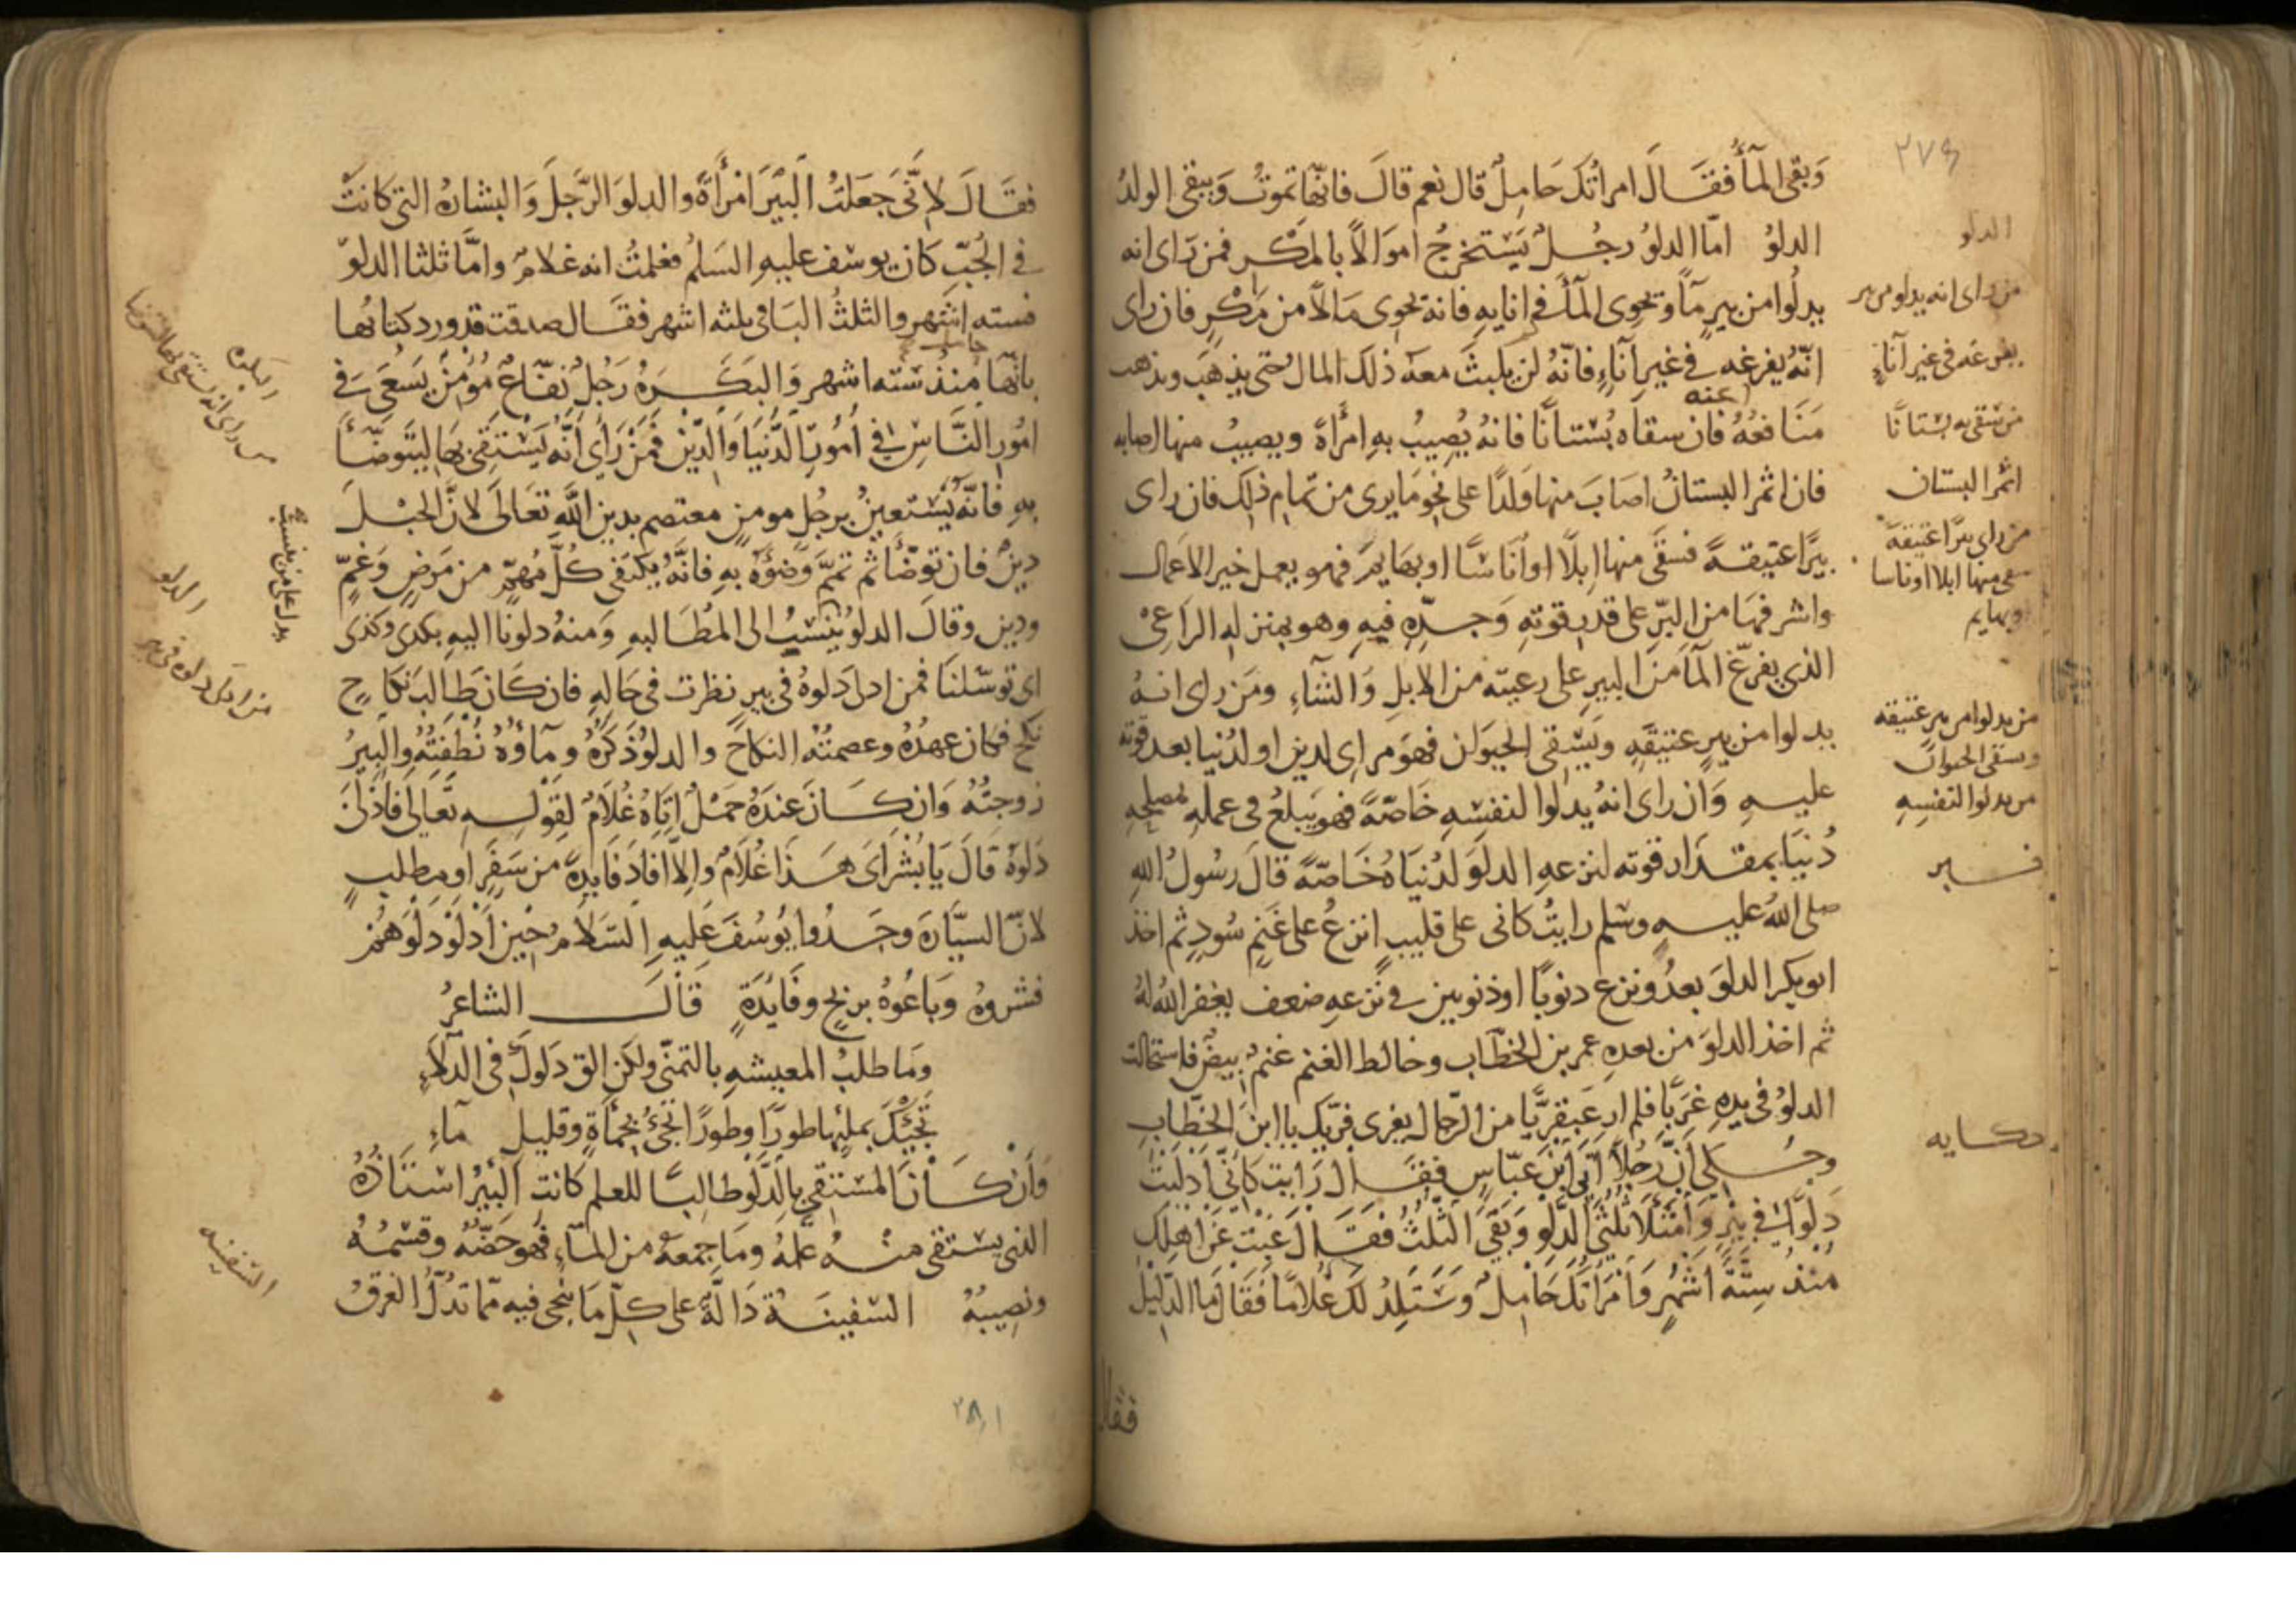 ٢٧٩
وَبَقى المآءُ فقَالَ امراتُكَ حَامِلٌ قال نعم قالَ فانّها تموتُ وَيبقى الولدُ
الدلوُ امّا الدلوُ رجُلٌ يَسْتخرجُ اموَالاً بالمَكْرِ فمن رَاى انه
يدلُوا من بيرٍ مآً وتحوى المآءُ فى انايهِ فانهُ يحوى مَالاً من مَكْرٍ فان راى
انّهُ يفرغه فى غيرِ اناءٍ فانّهُ لن يلبثَ معهُ ذلك المال حتى يذهَب وتذهب
عنه
مَنَافعُهُ فان سقاه بُسْتانًا فانهُ يُصِيبُ بهِ امرأةً ويصيبُ منها اصابه
فان اثمر البستانُ اصَابَ منها وَلدًا على نحو مَا يرى من تمام ذلِك فان راى
بيرًا عتيقةً فسقَى منها اِبلاً او اُنَاسًا او بهايمَ فهو يعمل خير الاعمال
واشرفهَا من البرّ على قدرِ قوتهِ وَجِدِّهِ فيهِ وهو بمنزلهِ الرَاعِىْ
الذى يفرّغ المآءَ من البيرِ على رعيته من الابلِ وَالشآءِ ومَن راى انهُ
يدلوا من بيرٍ عتيقةٍ وَيَسْقى الحيوان فهوَ مراىٍ لدين او لدُنيا بعد قوته
عليهِ وَان راى انهُ يدلوا لنفسِه خَاصّةً فهو يَبلغُ فى عملهِ مصلحهِ
دُنيَا بمقدَار قوته لنزعهِ الدلوَ لدُنيَاهُ خَاصّةً قالَ رسُولُ اللهِ
صلى اللهُ عليهِ وسَلم رايتُ كانى على قليبٍ انزعُ على غنمٍ سُودٍ ثم اخذ
ابو بكر الدلوَ بعدُ ونزع دنوبًا او ذنوبين فى نزعهِ ضعف يغفر اللهُ لهُ
ثم اخذ الدلوَ من بعدهِ عمر بن الخطّاب وخالط الغنم غنمٌ بيضٌ فاستحالت
الدلوُ فى يدهِ غَربًا فلم ار عَبقريًّا من الرّجال يفرى فريّك يا ابنَ الخَطّابِ
وحُكى اَنَّ رَجُلاً اَتى ابْنَ عَبّاسٍ فقَالَ رَايت كَانّى اَدْلَيْتُ
دَلْوًا فى بِئْرٍ وَامْتَلَا ثُلْثَىِ الدَّلْوِ وَبَقىَ الثّلثُ فقَالَ غِبْتَ عَن اَهْلِكَ
مُنذ سِتَّةِ اَشْهُرٍ وَاْمْرَاَتُكَ حَامِلٌ وَسَتَلِدُ لكَ غُلَامًا فَقَالَ مَا الدّلِيلُ
فقال
الدلو
من راى انه يدلو من بير
يفرغه فى غير آناءٍ
من سَقى به بستانًا
اثمر البستان
من راى بيرًا عتيقةً
سقى منها ابلا او ناسا
وبهايم
من يدلوا من بير عتيقه
ويسقى الحيوان
من يدلوا لنفسِهِ
حكايه
فقَالَ لاِنّى جَعَلتُ الَبيْرَ امْرَأةً والدلوَ الرّجلَ وَالبشارهُ التى كانَتْ
فى الجُبّ كان يوسُف عليهِ السَلمُ فعلمتُ انه غلامٌ وامَّا ثلثا الدلوِ
فستهِ اشهرٍ والثلثُ البَاقى ثلثه اشهر فقَال صدقت قد ورد كتابُها
بانّها حامل مُنذ سته اشهر وَالبَكَرَهُ رَجُلٌ نفّاعٌ مُؤمِنٌ يَسْعَى فى
اُمُور النَّاسِ فى اُمُورِ الدُّنيَا وَالدِّيْن فَمَنْ رَأى اَنَّهُ يَسْتَقى بهَا ليَتَوضّأ
بهِ فانّهُ يَسْتَعينُ برجُلٍ مومنٍ معتصم بدين اللّهِ تعَالى لانَّ الحبْلَ
دينٌ فان توضّأ ثم تممَّ وَضُوُهُ بهِ فانَّهُ يكتفى كُلَّ مُهمٍّ من مَرَضٍ وَغمٍّ
ودينٍ وقال الدلوُ ينسَبُ الى المُطَالبهِ وَمنهُ دلونَا اليهِ بكدى وكذى
اى توسّلنَا فمن ادلى دَلوهُ فى بيرٍ نظرت فى حَالهِ فان كَان طَالبَ نكاحٍ
نكحَ فكان عهدُهُ وعصمتُه النكاحَ والدلوُ ذَكرُهُ ومآؤُهُ نُطفَتُهُ والبيرُ
زوجتُهُ وَان كَانَ عندَهُ حَمْلٌ اتَاهُ غُلَامٌ لقَوْلهِ تعَالى فَاَدْلىَ
دَلوَهُ قَالَ يَا بُشْرَاىَ هَذَا غُلَامٌ وَاِلاّ افادَ فَايدةً من سَفَرٍ او مطلبٍ
لانّ السيّارَةَ وجَدُوا يُوسُفَ عَليهِ السَلَامُ حِيْن اَدْلَوْ دَلوَهُمْ
فشروهُ وَبَاعُوهُ بربحٍ وفَايدَةٍ قَالَ الشاعرُ
وَمَا طلبُ المعيشهِ بالتمنّى ولكن الق دَلوكَ فى الدّلَاءِ
تَجيْكَ بملئِها طورًا وطورًا تجئُ بحَمأةٍ وقليلِ مآءِ
وَاَن كَانَ المسْتَقى بالدَّلْوِ طالبًا للعلم كانت البيْرُ اسْتَاذُهُ
الذى يسْتقى منهُ علمَهُ ومَا جمعهُ من المَآءِ فهو حَظّهُ وقسْمُهُ
ونصِيبُهُ السّفينَهُ دَالّةٌ على كلِّ مَا ينجى فيه ممّا تدلُّ الغرقُ
البكره
من راى انه يستقى بها ليتوضا
الدلو
من ادلى دلوه فى بير
السفينه
٢٨١